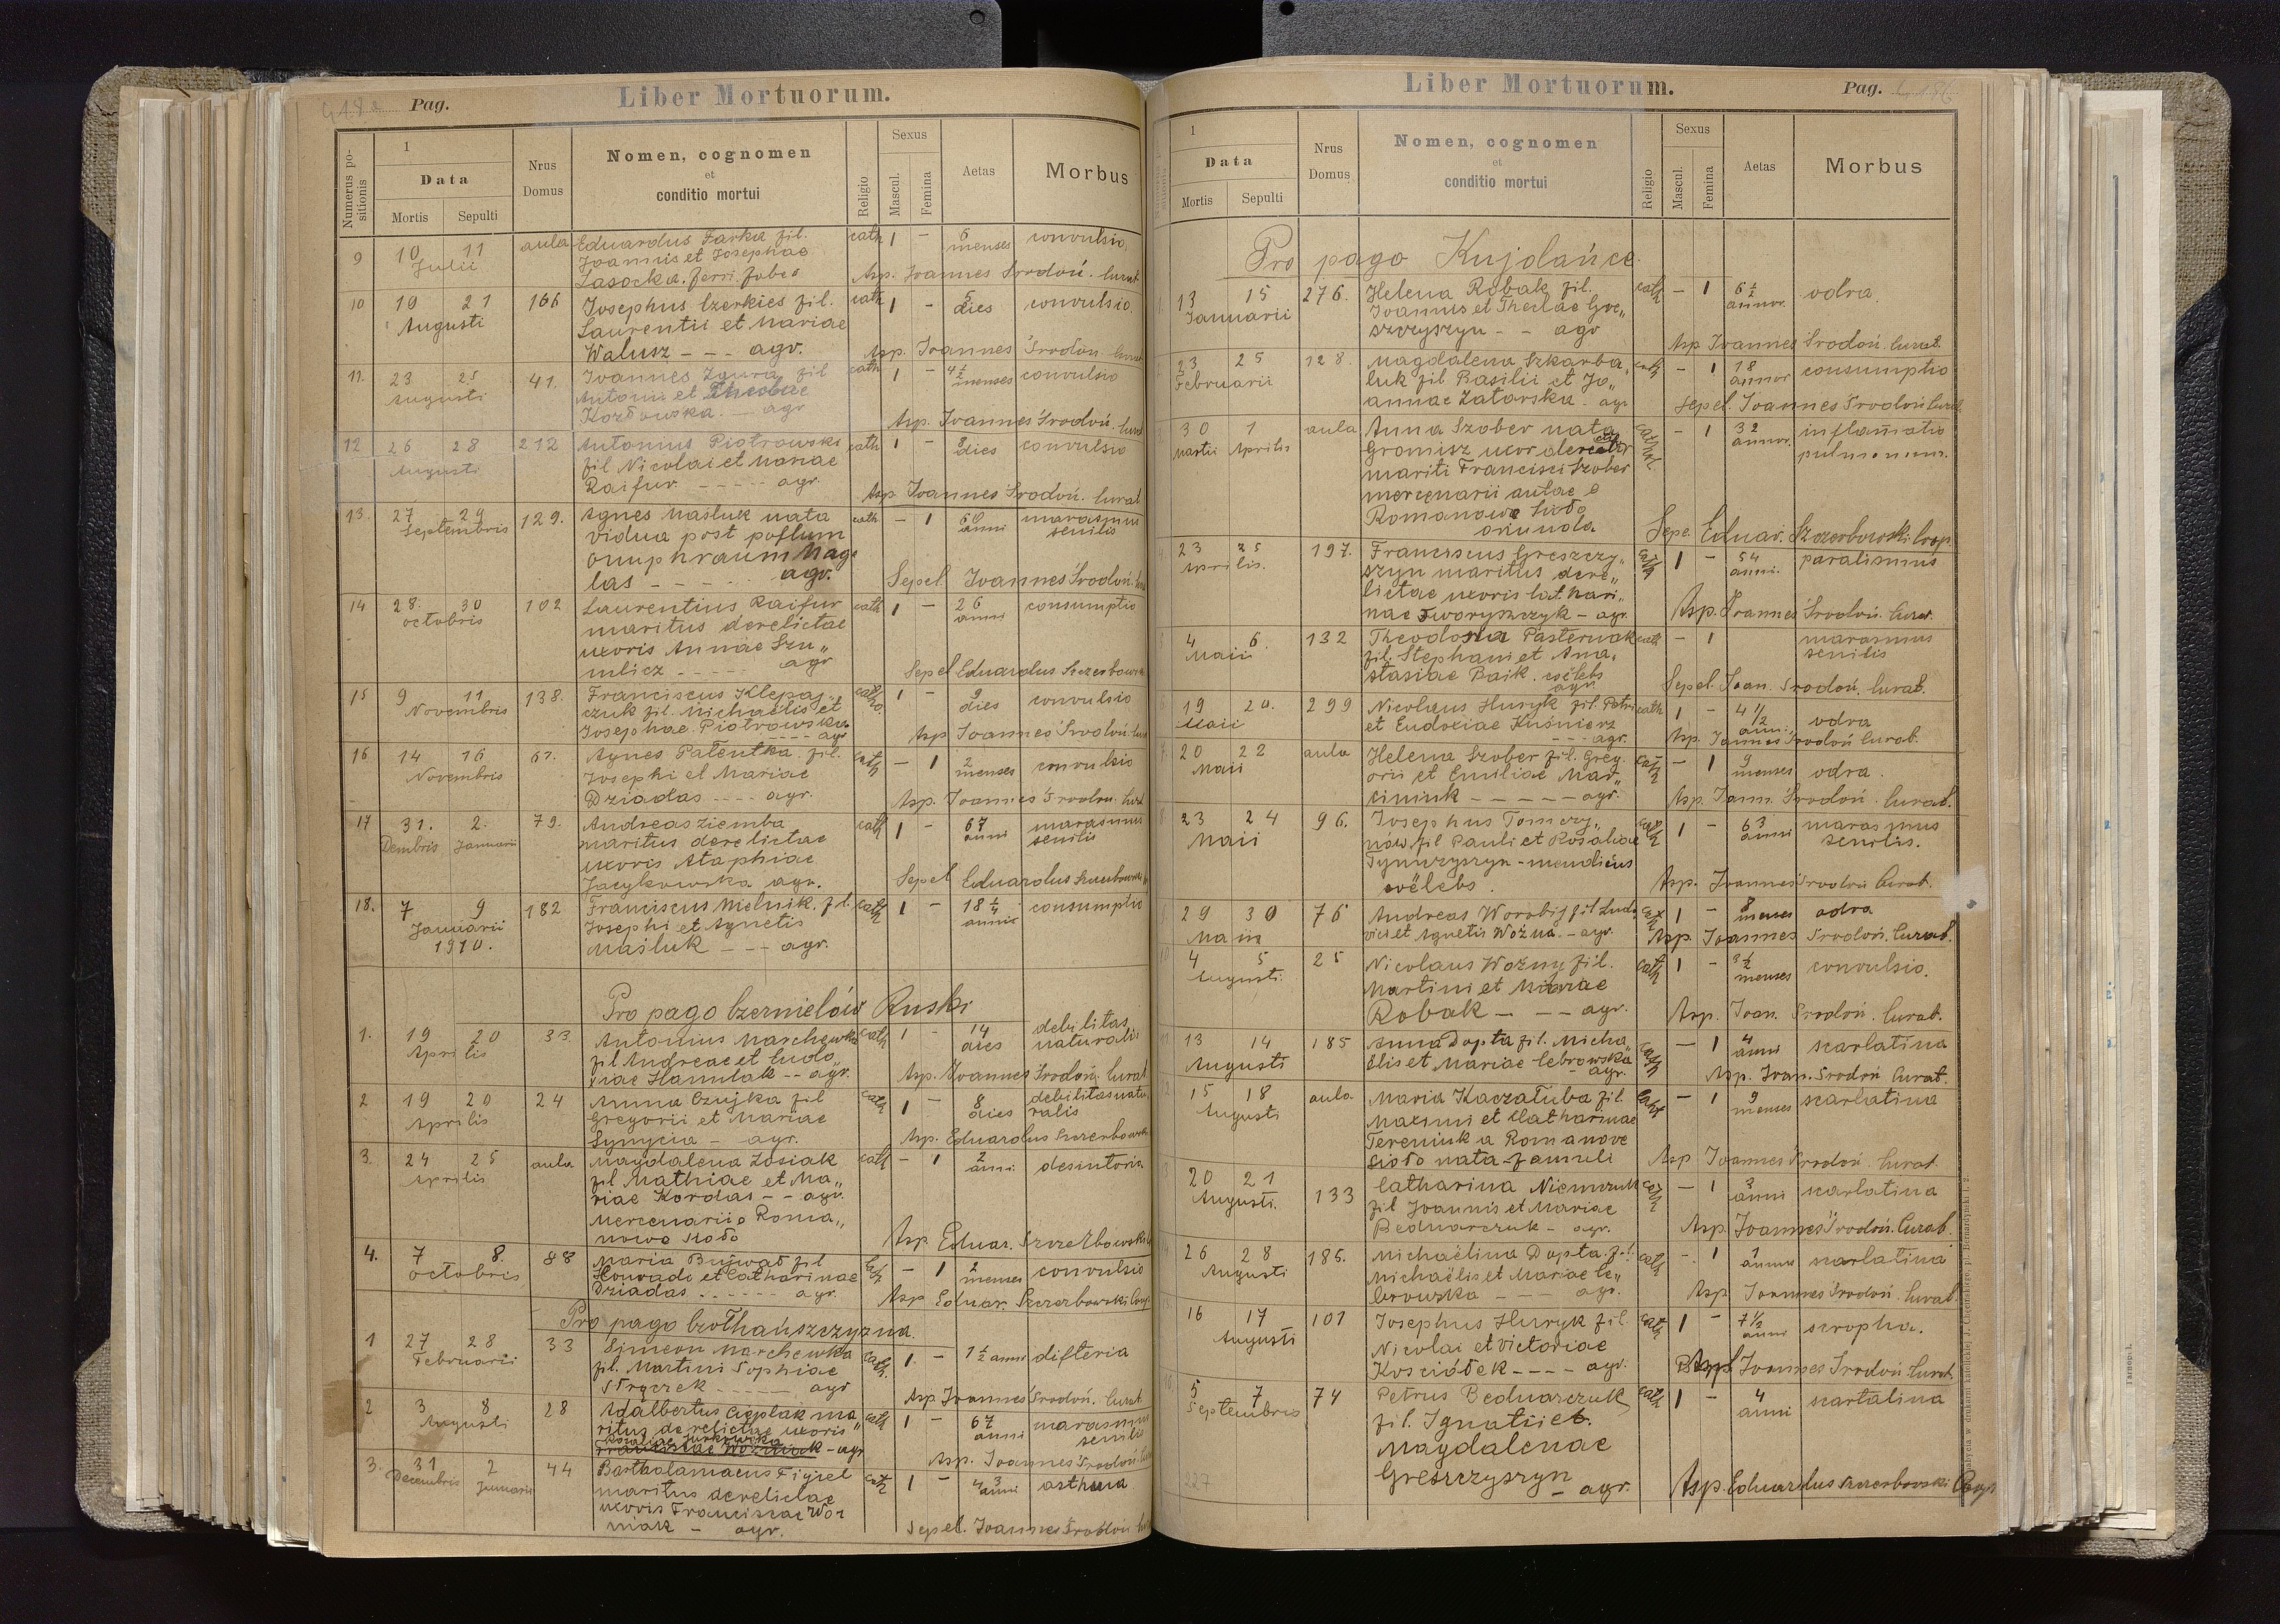 Pag.
Liber Mortuorum.
Numerus positionis
1
Data
Mortis
Sepulti
Nrus Domus
Nomen, cognomen
et
conditio mortui
Religio
Sexus
Mascul.
Femina
Aetas
Morbus
9 10 11 aula Eduardus Farka fil. cath 1 - 6 convulsio
Julii Joannis et Josephae menses
Lasocka. ferri fabeo Asp. Joannes Środoń. Curat
10 19 21 166 Josephus Czerkies fil. cath 1 - 5 convulsio
Augusti Laurentii et Mariae dies
Walusz - - - agr. Asp. Joannes Środoń. Curat
11. 23 25 41. Joannes Zgura fil cath 1 - 4 1/2 convulsio
Augusti Antonii et Theclae menses
Kozłowska. - agr Asp. Joannes Środoń. Curat
12 26 28 212 Antonius Piotrowski cath 1 - 8 convulsio
Augusti fil Nicolai et Mariae dies
Raifur. - - - - - agr. Asp Joannes Środoń. Curat
13. 27 29 129. Agnes Maśluk nata cath - 1 60 marasmus
Septembris vidua post poflum anni senilis
onuphraum Mag
las - - - - - agr. Sepel. Joannes Środoń.
14 28. 30 102 Laurentius Raifur cath 1 - 26 consumptio
octobris maritus derelictae anni
uxoris Annae Szu„
mlicz - - - - agr Sepel Eduardus Szczerbowski
15 9 11 138. Franciscus Klepaj„ catho. 1 - 9 convulsio
Novembris czuk fil. Michaëlis et dies
Josephae Piotrowska
- - - - agr Asp Joannes Środoń.
16 14 16 67. Agnes Pałentka. fil. cath - 1 2 convulsio
Novembris Josephi et Mariae menses
Dziadas - - - - agr. Asp. Joannes Środoń. Curat
17 31. 2. 79. Andreas Ziemba cath 1 - 67 marasmus
Dembris Januarii maritus derelictae anni senilis
uxoris Ataphiae
Jacykowska agr. Sepel Eduardus Szczerbowski
18. 7 9 182 Franciscus Mielnik. fil. cath 1 - 18 1/4 consumptio
Januarii Josephi et Agnetis annis
1910. Maśluk - - - agr.
Pro pago Czernielów Ruski
1. 19 20 33. Antonius Marchewka cath 1 - 14 debilitas
Aprilis fil Andreae et Eudo„ dies naturalis
xiae Hamulak - - agr. Asp. Joannes Środoń. Curat
2 19 20 24 Anna Czujka fil cath 1 - 8 debilitas natu„
Aprilis Gregorii et Mariae dies ralis
Synycia - agr. Asp. Eduardus Szczerbowski
3. 24 25 aula Magdalena Zosiak cath - 1 2 desintoria
Aprilis fil Mathiae et Ma„ anni
riae Kordas - - agr.
mercenarii e Roma„
nowo Sioło Asp. Eduar. Szczerbowski
4. 7 8. 88 Maria Bujwał fil cath - 1 2 convulsio
octobris Konradi et Catharinae menses
Dziadas - - - - - - agr. Asp Eduar. Szczerbowski Coop.
Pro pago Czołhańszczyzna.
1 27 28 33 Simeon Marchewka cath. 1. - 1 1/2 anni difteria
Februarii fil. Martini Sophiae
Stryczek - - - - - agr Asp. Joannes Środoń. Curat
2 3 8 28 Adalbertus Cieplak ma„ cath 1 - 67 marasmus
Augusti ritus derelictae uxoris anni senilis
Rosaliae Jurkowska
Franciscae Wozniak - agr Asp. Joannes Środoń.
3. 31 2 44 Bartholamaeus Figiel cath 1 - 43 asthma
Decembris Januarii maritus derelictae anni
uxoris Franciscae Woz
niak - agr. Sepel. Joannes Środoń
Liber Mortuorum.
Pag.
1
Data
Mortis
Sepulti
Nrus Domus
Nomen, cognomen
et
conditio mortui
Religio
Sexus
Mascul.
Femina
Aetas
Morbus
Pro pago Kujdańce.
13 15 276. Helena Robak fil. cath - 1 6 1/2 odra.
Januarii Joannis et Theclae Gre„ annor.
szczyszyn - - agr Asp Joannes Środoń. Curat.
23 25 128. Magdalena Szkarba„ cath - 1 18 consumptio
Februarii luk fil Basilii et Jo„ annor
annae Zatorska - agr Sepel. Joannes Środoń Curat.
30 1 aula Anna Szober nata cathol. - 1 32 inflamatio
Martii Aprilis Gromisz uxor derelicti annor. pulmonum.
mariti Francisci Szober
mercenarii aulae e
Romanowe Sioło
oriunda Sepe. Eduar. Szczerbowski Coop.
23 25 197. Franciscus Greszczy„ cath 1 - 54 paralismus
Aprilis. szyn maritus dere„ anni.
lictae uxoris Cathari„
nae Tworyszczyk - agr. Asp. Joannes Środoń. Curat.
4 6. 132 Theodosia Pasternak cath - 1 marasmus
Maii fil. Stephani et Ana„ senilis
stasiae Baik. coëlebs
agr. Sepel. Joan. Środoń. Curat.
19 20. 299 Nicolaus Huryk fil. Petri cath 1 - 4 1/2 odra
Maii et Eudoxiae Kuśnierz anni.
- - - agr. Asp. Joannes Środoń Curat.
20 22 aula Helena Szober fil. Greg„ cath - 1 9 odra.
Maii orii et Emiliae Mar„ menses
ciniuk - - - - - agr. Asp. Joann. Środoń. Curat.
23 24 96. Josephus Tomczy„ cath 1 - 63 marasmus
Maii nów fil Pauli et Rosaliae anni senilis.
Tymczyszyn - mendicus
coëlebs. Asp. Joannes Środoń Curat.
29 30 76 Andreas Worobij fil Ludo cath 1 - 8 odra
Maii vici et Agnetis Woźna. - agr. menses Asp. Joannes Środoń. Curat.
4 5 25 Nicolaus Woźny fil. cath 1 - 3 1/2 convulsio.
Augusti. Martini et Mariae menses
Robak - - - agr. Asp. Joan. Środoń. Curat.
13 14 185 Anna Dopta fil. Micha„ cath - 1 4 scarlatina
Augusti ëlis et Mariae Cebrowska anni
agr. Asp. Joan. Środoń Curat.
15 18 aula. Maria Kaczałuba fil. cath - 1 9 scarlatina
Augusti Maximi et Catharinae menses
Tereniuk a Romanove
Sioło nata - famuli Asp Joannes Środoń. Curat.
20 21 133 Catharina Niemczuk cath - 1 3 scarlatina
Augusti. fil Joannis et Mariae anni
Bednarczuk - agr. Asp. Joannes Środoń. Curat.
26 28 185. Michaëlina Dopta. fil. cath - 1 1 scarlatina
Augusti Michaëlis et Mariae Ce„ annus
browska - - - agr. Asp Joannes Środoń. Curat.
16 17 101 Josephus Huryk fil. cath 1 - 7 1/2 scropha.
Augusti Nicolai et Victoriae anni
Kosciółek - - - - agr. Asp. Joannes Środoń Curat.
5 7 74 Petrus Bednarczuk cath 1 - 4 scarlatina
Septembris fil. Ignatii et anni
Magdalenae
Greszczyszyn
- agr. Asp. Eduardus Szczerbowski Coop.
227